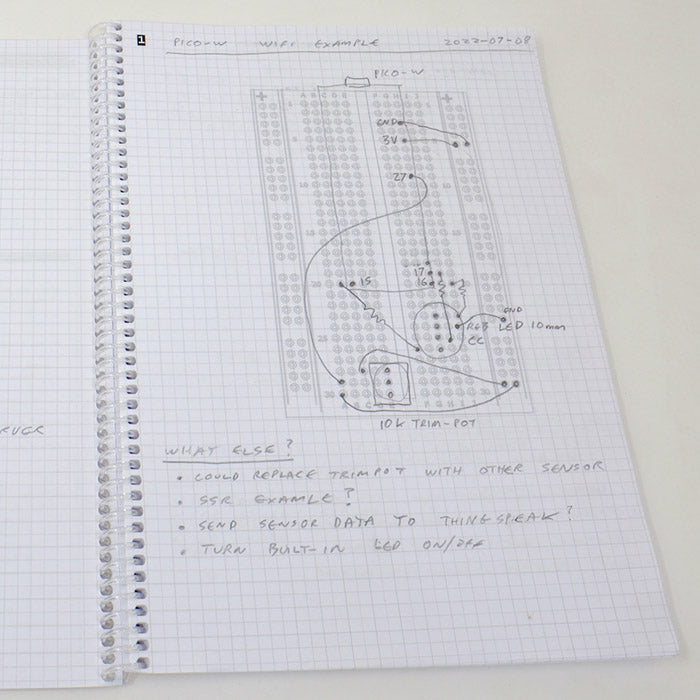 1
PICO-W WIFI EXAMPLE 2022-07-08
PICO-W
GND
3V
27
17
15
16
GND
RGB LED 10mm
CC
10K TRIM-POT
WHAT ELSE?
• COULD REPLACE TRIMPOT WITH OTHER SENSOR
• SSR EXAMLE?
• SEND SENSOR DATA TO THINGSPEAK?
• TURN BUILT-IN LED ON/OFF